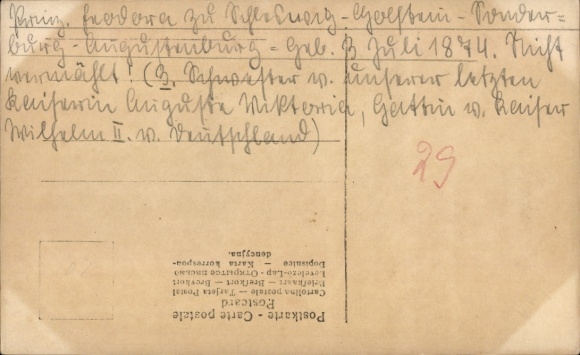 Prinz. Feodora zu Schleswig-Holstein-Sonder=
burg-Augustenburg = Geb. 3 Juli 1874. Nicht
vermählt! (3. Schwester v. unserer letzten
Kaiserin Auguste Viktoria, Gattin v. Kaiser
Wilhelm II. v. Deutschland)
29
Postkarte - Carte postale
Postcard
Cartolina postale — Tarjeta Postal
Briefkaart — Brefkort — Brevkort
Levelező-Lap - Открытое письмо
Dopisnice — Karta korrespon-
dencyjna.